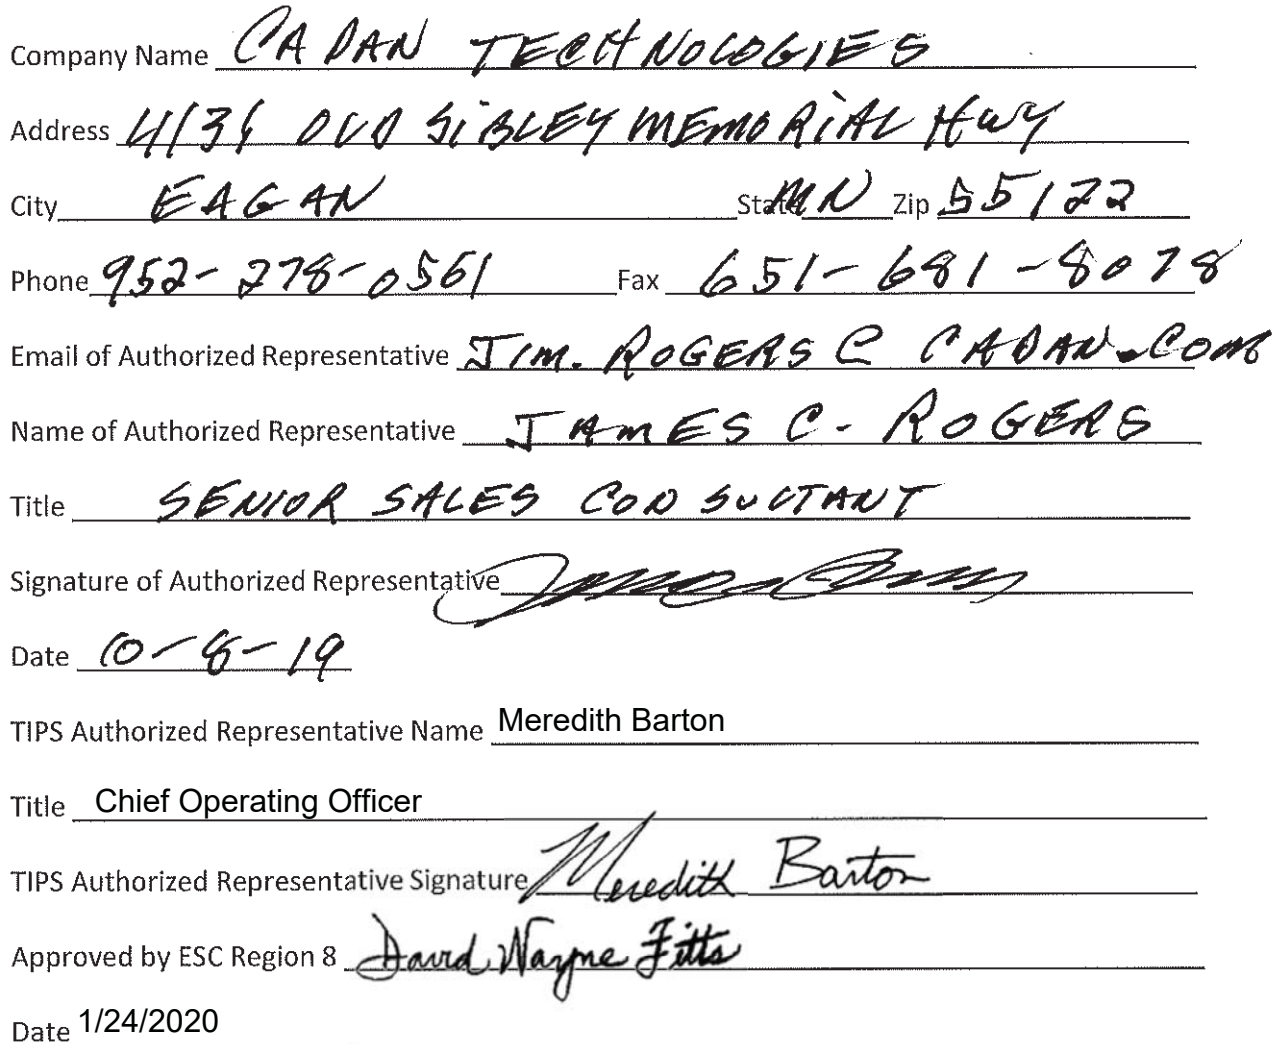 Company Name CADAN TECHNOLOGIES
Address OLD SIBLEY MEMORIAL HWY
City EAGAN State MN Zip 55122
Phone 952-278-0561 Fax 651-681-8078
Email of Authorized Representative JIM.ROGERS@CADAN.COM
Name of Authorized Representative JAMES C. ROGERS
Title SENIOR SALES CONSULTANT
Signature of Authorized Representative
Date 10-8-19
TIPS Authorized Representative Name Meredith Barton
Title Chief Operating Officer
TIPS Authorized Representative Signature Meredith Barton
Approved by ESC Region 8 David Wayne Fitts
Date 1/24/2020